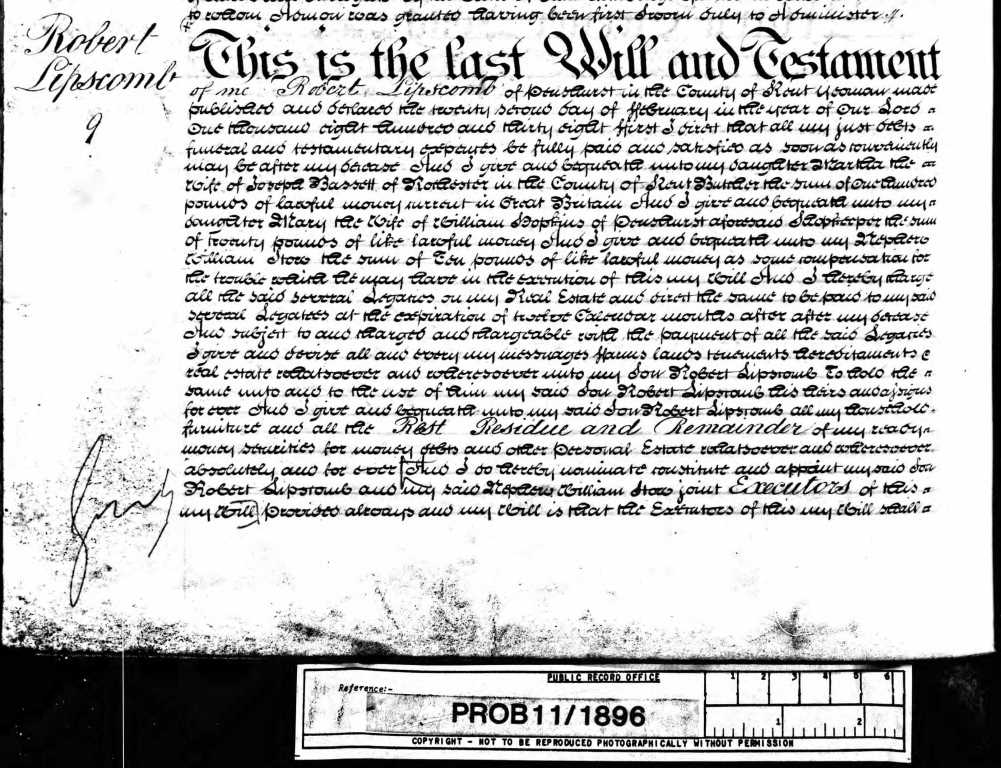 to whom Admon was granted having been first sworn duly to Administer.
Robert
Lipscomb
9
This is the last Will and Testament
of me Robert Lipscomb of Penshurst in the County of Kent Yeoman made
published and declared the twenty second day of ffebruary in the year of Our Lord
One thousand eight hundred and thirty eight ffirst I direct that all my just debts
funeral and testamentary expenses be fully paid and satisfied as soon as conveniently
may be after my decease And I give and bequeath unto my daughter Martha the
wife of Joseph Bassett of Rochester in the County of Kent Butcher the sum of One hundred
pounds of lawful money current in Great Britain And I give and bequeath unto my
daughter Mary the Wife of William Hopkins of Penshurst aforesaid Shopkeeper the sum
of twenty pounds of like lawful money And I give and bequeath unto my Nephew
William the sum of Ten pounds of like lawful money as some compensation for
the trouble which he may have in the execution of this my Will And I hereby charge
all the said several Legacies on my Real Estate and direct the same to be paid to my said
several Legatees at the expiration of twelve Calendar months after after my decease
And subject to and charged and chargeable with the payment of all the said Legacies
I give and devise all and every my messuages ffarms lands tenements hereditaments &
real estate whatsoever and wheresoever unto my Son Robert Lipscomb To hold the
same unto and to the use of him my said Son Robert Lipscomb his heirs and assigns
for ever And I give and bequeath unto my said Son Robert Lipscomb all my household
furniture and all the Rest Residue and Remainder of my ready
money securities for money debts and other Personal Estate whatsoever and wheresoever
absolutely and for ever And I do hereby nominate constitute and appoint my said Son
Robert Lipscomb and my said Nephew William joint Executors of this
my Will Provided always and my Will is that the Executors of this my Will shall
PUBLIC RECORD OFFICE
Reference:-
1 2 3 4 5 6
PROB 11/1896
1 2
COPYRIGHT - NOT TO BE REPRODUCED PHOTOGRAPHICALLY WITHOUT PERMISSION